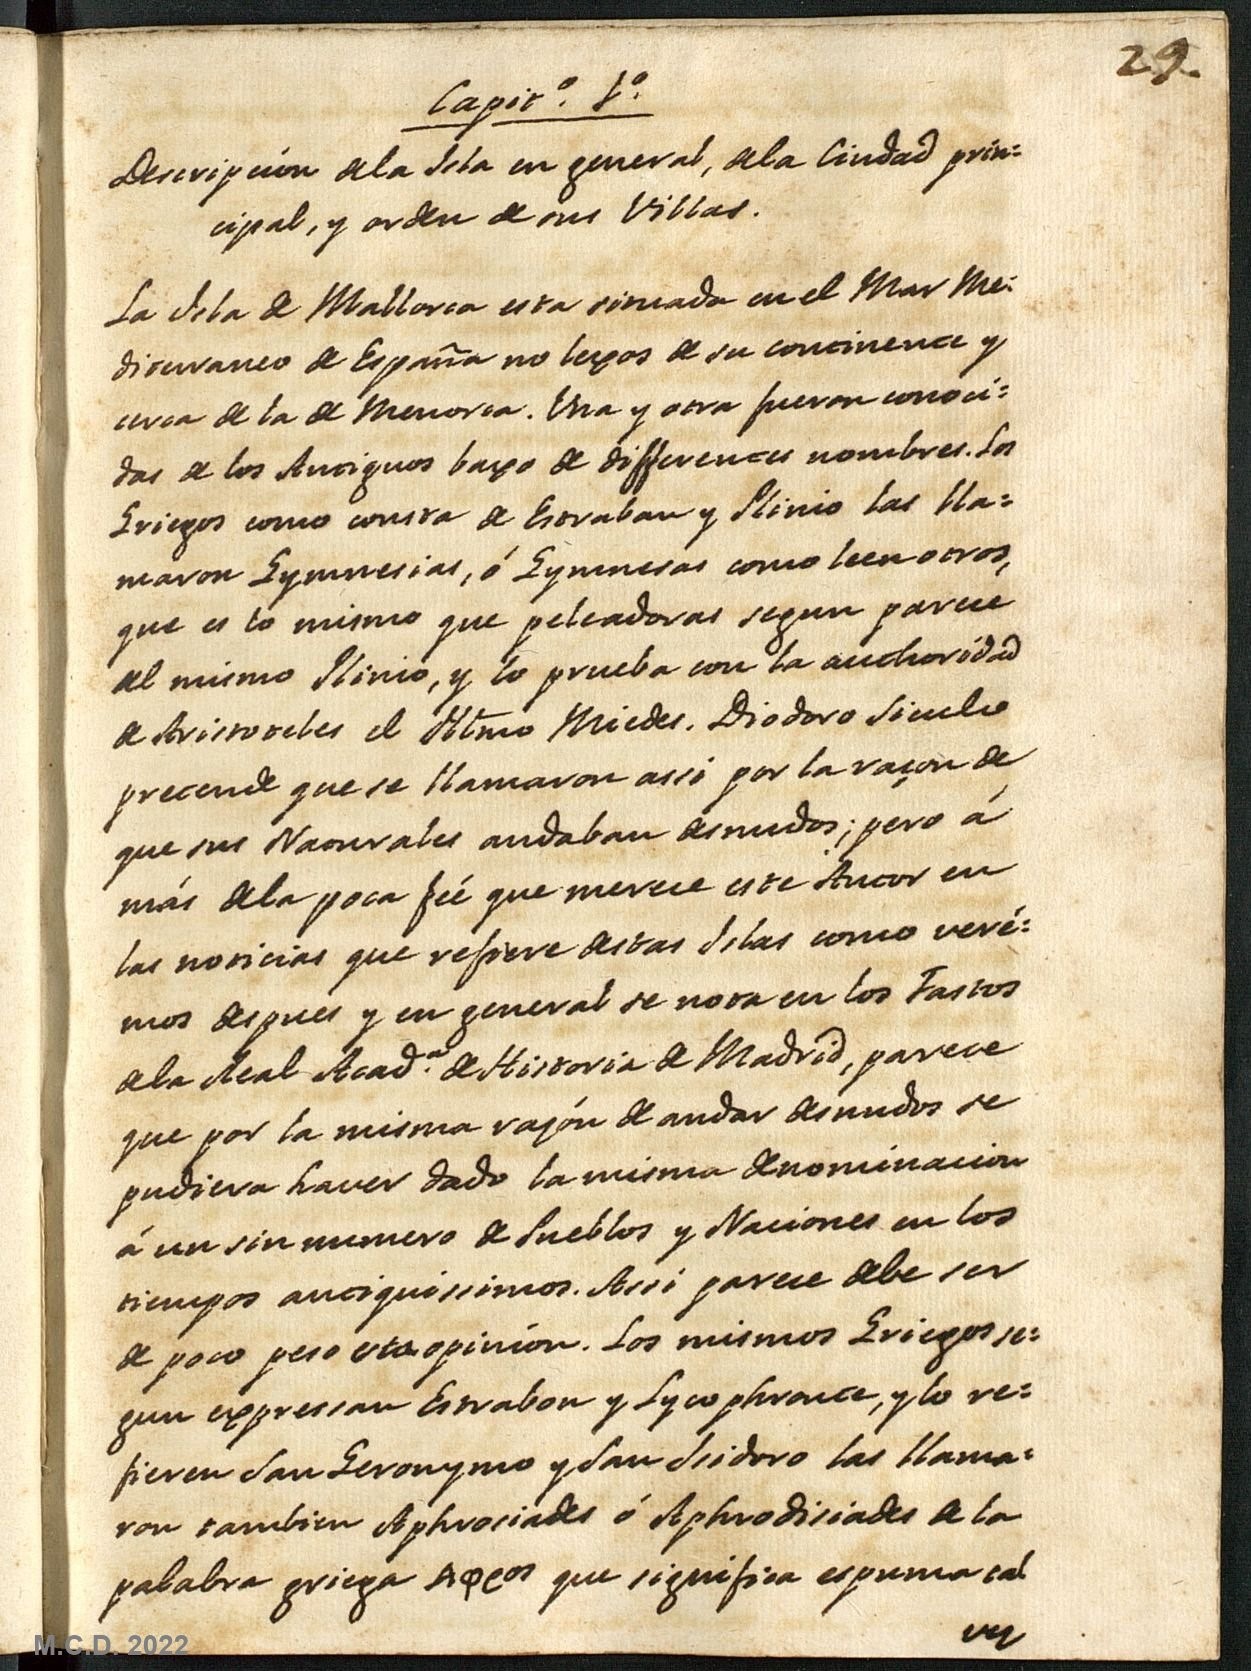 29.
Capit.º 1.º
Descripción dela Isla en general, dela Ciudad prin=
cipal, y orden de sus Villas.
La Isla de Mallorca esta situada en el Mar Me=
diterraneo de España no lexos de su continente y
cerca de la de Menorca. Una y otra fueron conoci=
das de los Antiguos baxo de differentes nombres. Los
Griegos como consta de Estrabon y Plinio las lla=
maron Gymnesias, ó Gymnesas como leen otros,
que es lo mismo que peleadoras segun parece
al mismo Plinio, y lo prueba con la authoridad
de Aristoteles el Illmo Miedes. Diodoro Siculo
pretende que se llamaron assi por la raçon de
que sus Naturales andaban desnudos; pero á
más dela poca feé que merece este Autor en
las noticias que refiere destas Islas como veré=
mos despues y en general se nota en los Fastos
dela Real Acad.ª de Historia de Madrid, parece
que por la misma razón de andar desnudos se
pudiera haver dado la misma denominacion
á un sin numero de Pueblos y Naciones en los
tiempos antiquissimos. Assi parece debe ser
de poco peso esta opinión. Los mismos Griegos se=
gun expressan Estrabon y Lycophronte, y lo re=
fieren San Geronymo y San Isidoro las llama=
ron tambien Aphrosiades ó Aphrodisiades de la
palabra griega Αφρος que significa espuma tal
vez
M.C.D. 2022